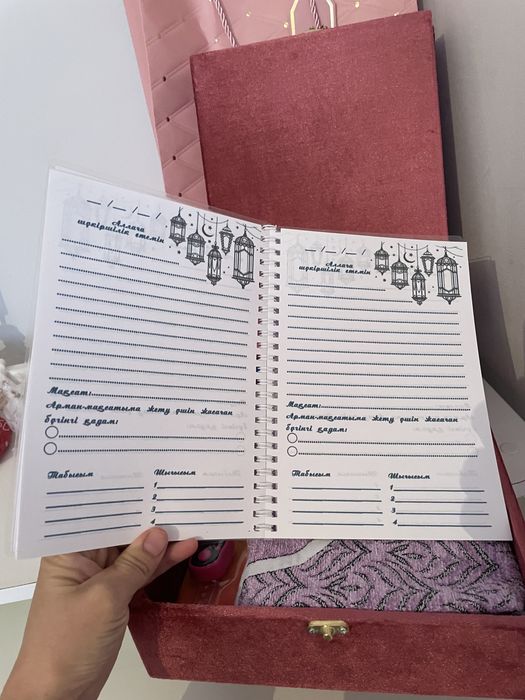 _/_/_/
Аллаға
шүкіршілік етемін
Мақсат:
Арман-мақсатыма жету үшін жасаған
бүгінгі қадам:
Табысым
Шығысым
1
2
3
4
_/_/_/
Аллаға
шүкіршілік етемін
Мақсат:
Арман-мақсатыма жету үшін жасаған
бүгінгі қадам:
Табысым
Шығысым
1
2
3
4